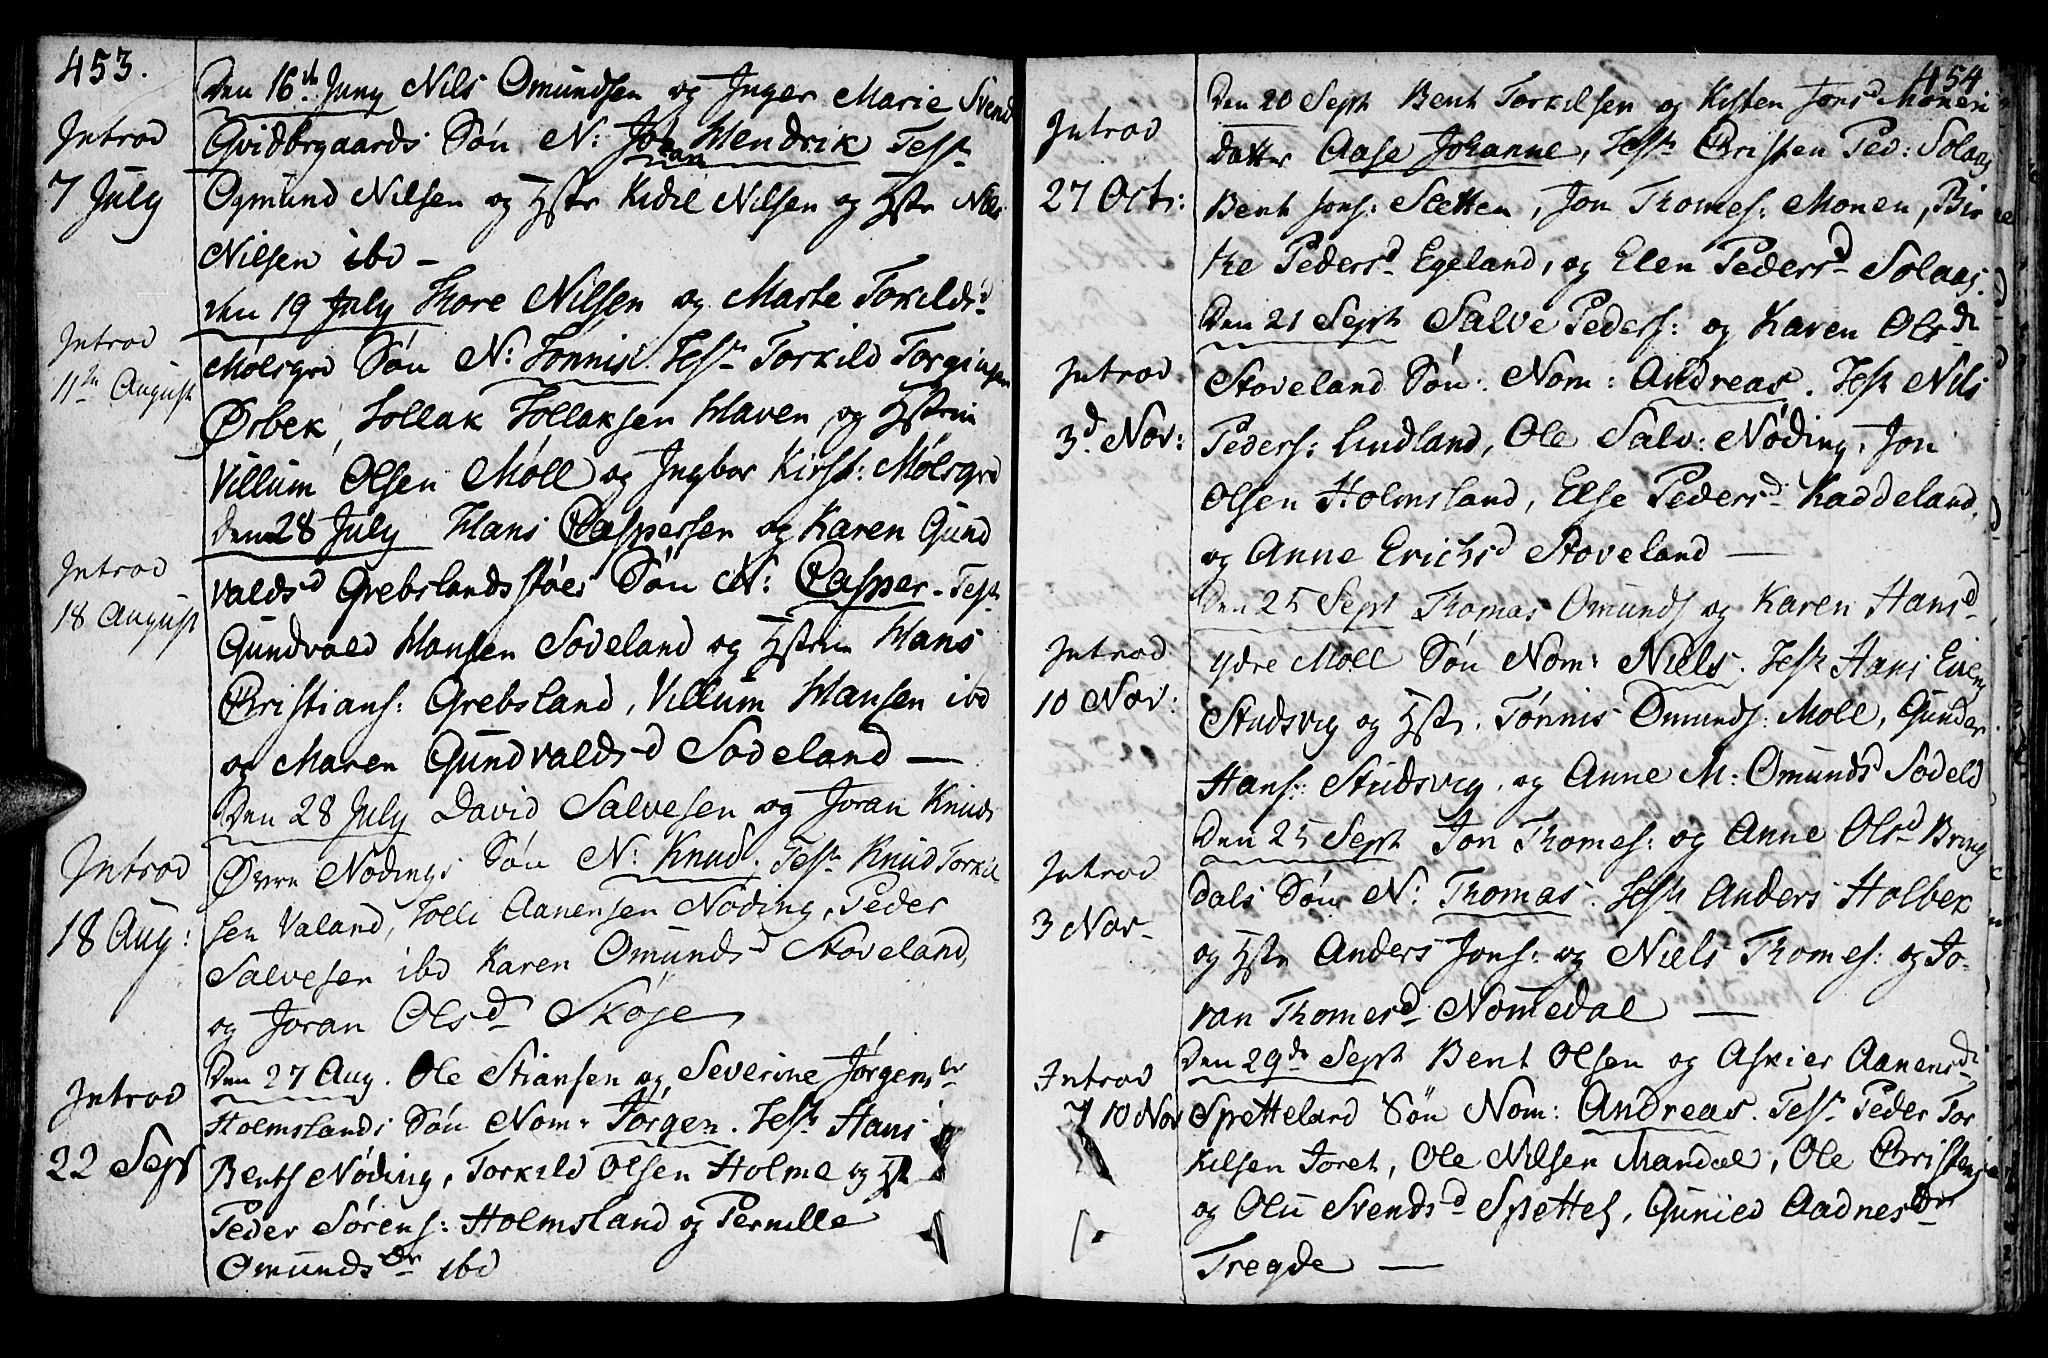 453.
Den 16th Juny Nils Omundsen og Inger Marie Svend
Introd
Qvidbrgaards Søn N: Johan Hendrik Test
7 July
Ogmund Nilsen og Hstr Kidil Nilsen og Hstr Niels
Nilsen ibd –
Den 19 July Thore Nilsen og Marte Tokildsd
Introd
Mølsgrd Søn N: Tønnis. Test Torkild Torginsen
11te August
Ørbek, Tollak Tollaksen Haven, og Hstrin
Villum Olsen Møll og Ingbor Kirst: Mølsgrd
Den 28 July Hans Caspersen og Karen Gund
Introd
valdsd Grebslandsstøes Søn N: Casper. Test
18 August
Gundvald Hansen Sodeland og Hstrin Hans
Christians: Grebsland, Villum Hansen ibd
og Maren Gundvaldsd Sodeland —
Den 28 July David Salvesen og Joran Knuds
Introd
Øvre Nødings Søn N: Knud. Test Knud Torkil
18 Aug:
sen Valand, Tolli Aanensen Nøding, Peder
Salvesen ibd Karen Omundsd Stoveland,
og Joran Olsd Skøje
Den 27 Aug. Ole Stiansen og Severine Jørgensdr
Introd
Holmslands Søn Nom: Jørgen. Test Hans
22 Sept
Bents Nøding, Torkild Olsen Holme og Hst
Peder Sørens: Holmsland og Pernille
Omundsdr ibd
454
Den 20 Sept Bent Torkilsen og Kisten Jonsd Monen
Introd
datter Aase Johanne, Test Christen Ped: Solaas
27 Octr:
Bent Jons: Sletten, Jon Thomes: Monen, Bir
the Pedersd Egeland, og Elen Pedersd Solaas.
Den 21 Sept Salve Peders: og Karen Olsdr
Introd
Stoveland Søn: Nom: Andreas. Test Nils
3d Nov:
Peders: Lindland, Ole Salv: Nøding, Jon
Olsen Holmsland, Else Pedersd Kaddeland,
og Anne Erichsd Stoveland —
Den 25 Sept Thomas Omunds og Karen Hansd
Introd
ydre Moll Søn Nom: Niels. Test Hans
10 Nov:
Studsvig og Hstr. Tønnis Omunds: Moll, Gunder
Hans: Studsvig, og Anne M: Omundsd Sodeld
Den 25 Sept Jon Thomes: og Anne Olsd Bring
Introd
dals Søn N: Thomas. Test Anders Holbek
3 Nov–
og Hstr Anders Jons: og Niels Thomes: og Jo-
ran Thomesd Nomedal —
Den 29de Sept Bent Olsen og Askier Aanensdr
Introd
Spetteland Søn Nom: Andreas. Test Peder Tor
10 Nov
kilsen Joret, Ole Nilsen Mandal, Ole Christens
og Olu Svendsd Spettel, Gunied Aadnesdtr
Tregde —